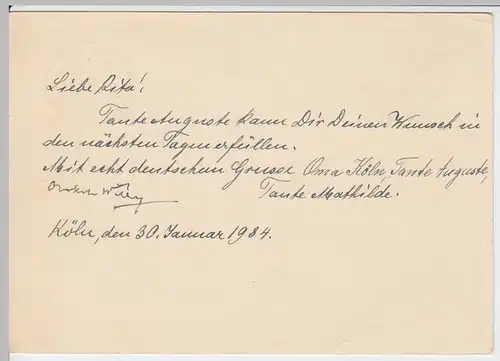 Liebe Rita!
Tante Auguste kann Dir Deinen Wunsch in
den nächsten Tagen erfüllen.
Mit echt deutschem Grusse Oma Köln, Tante Auguste,
Onkel Willy
Tante Mathilde.
Köln, den 30. Januar 1934.